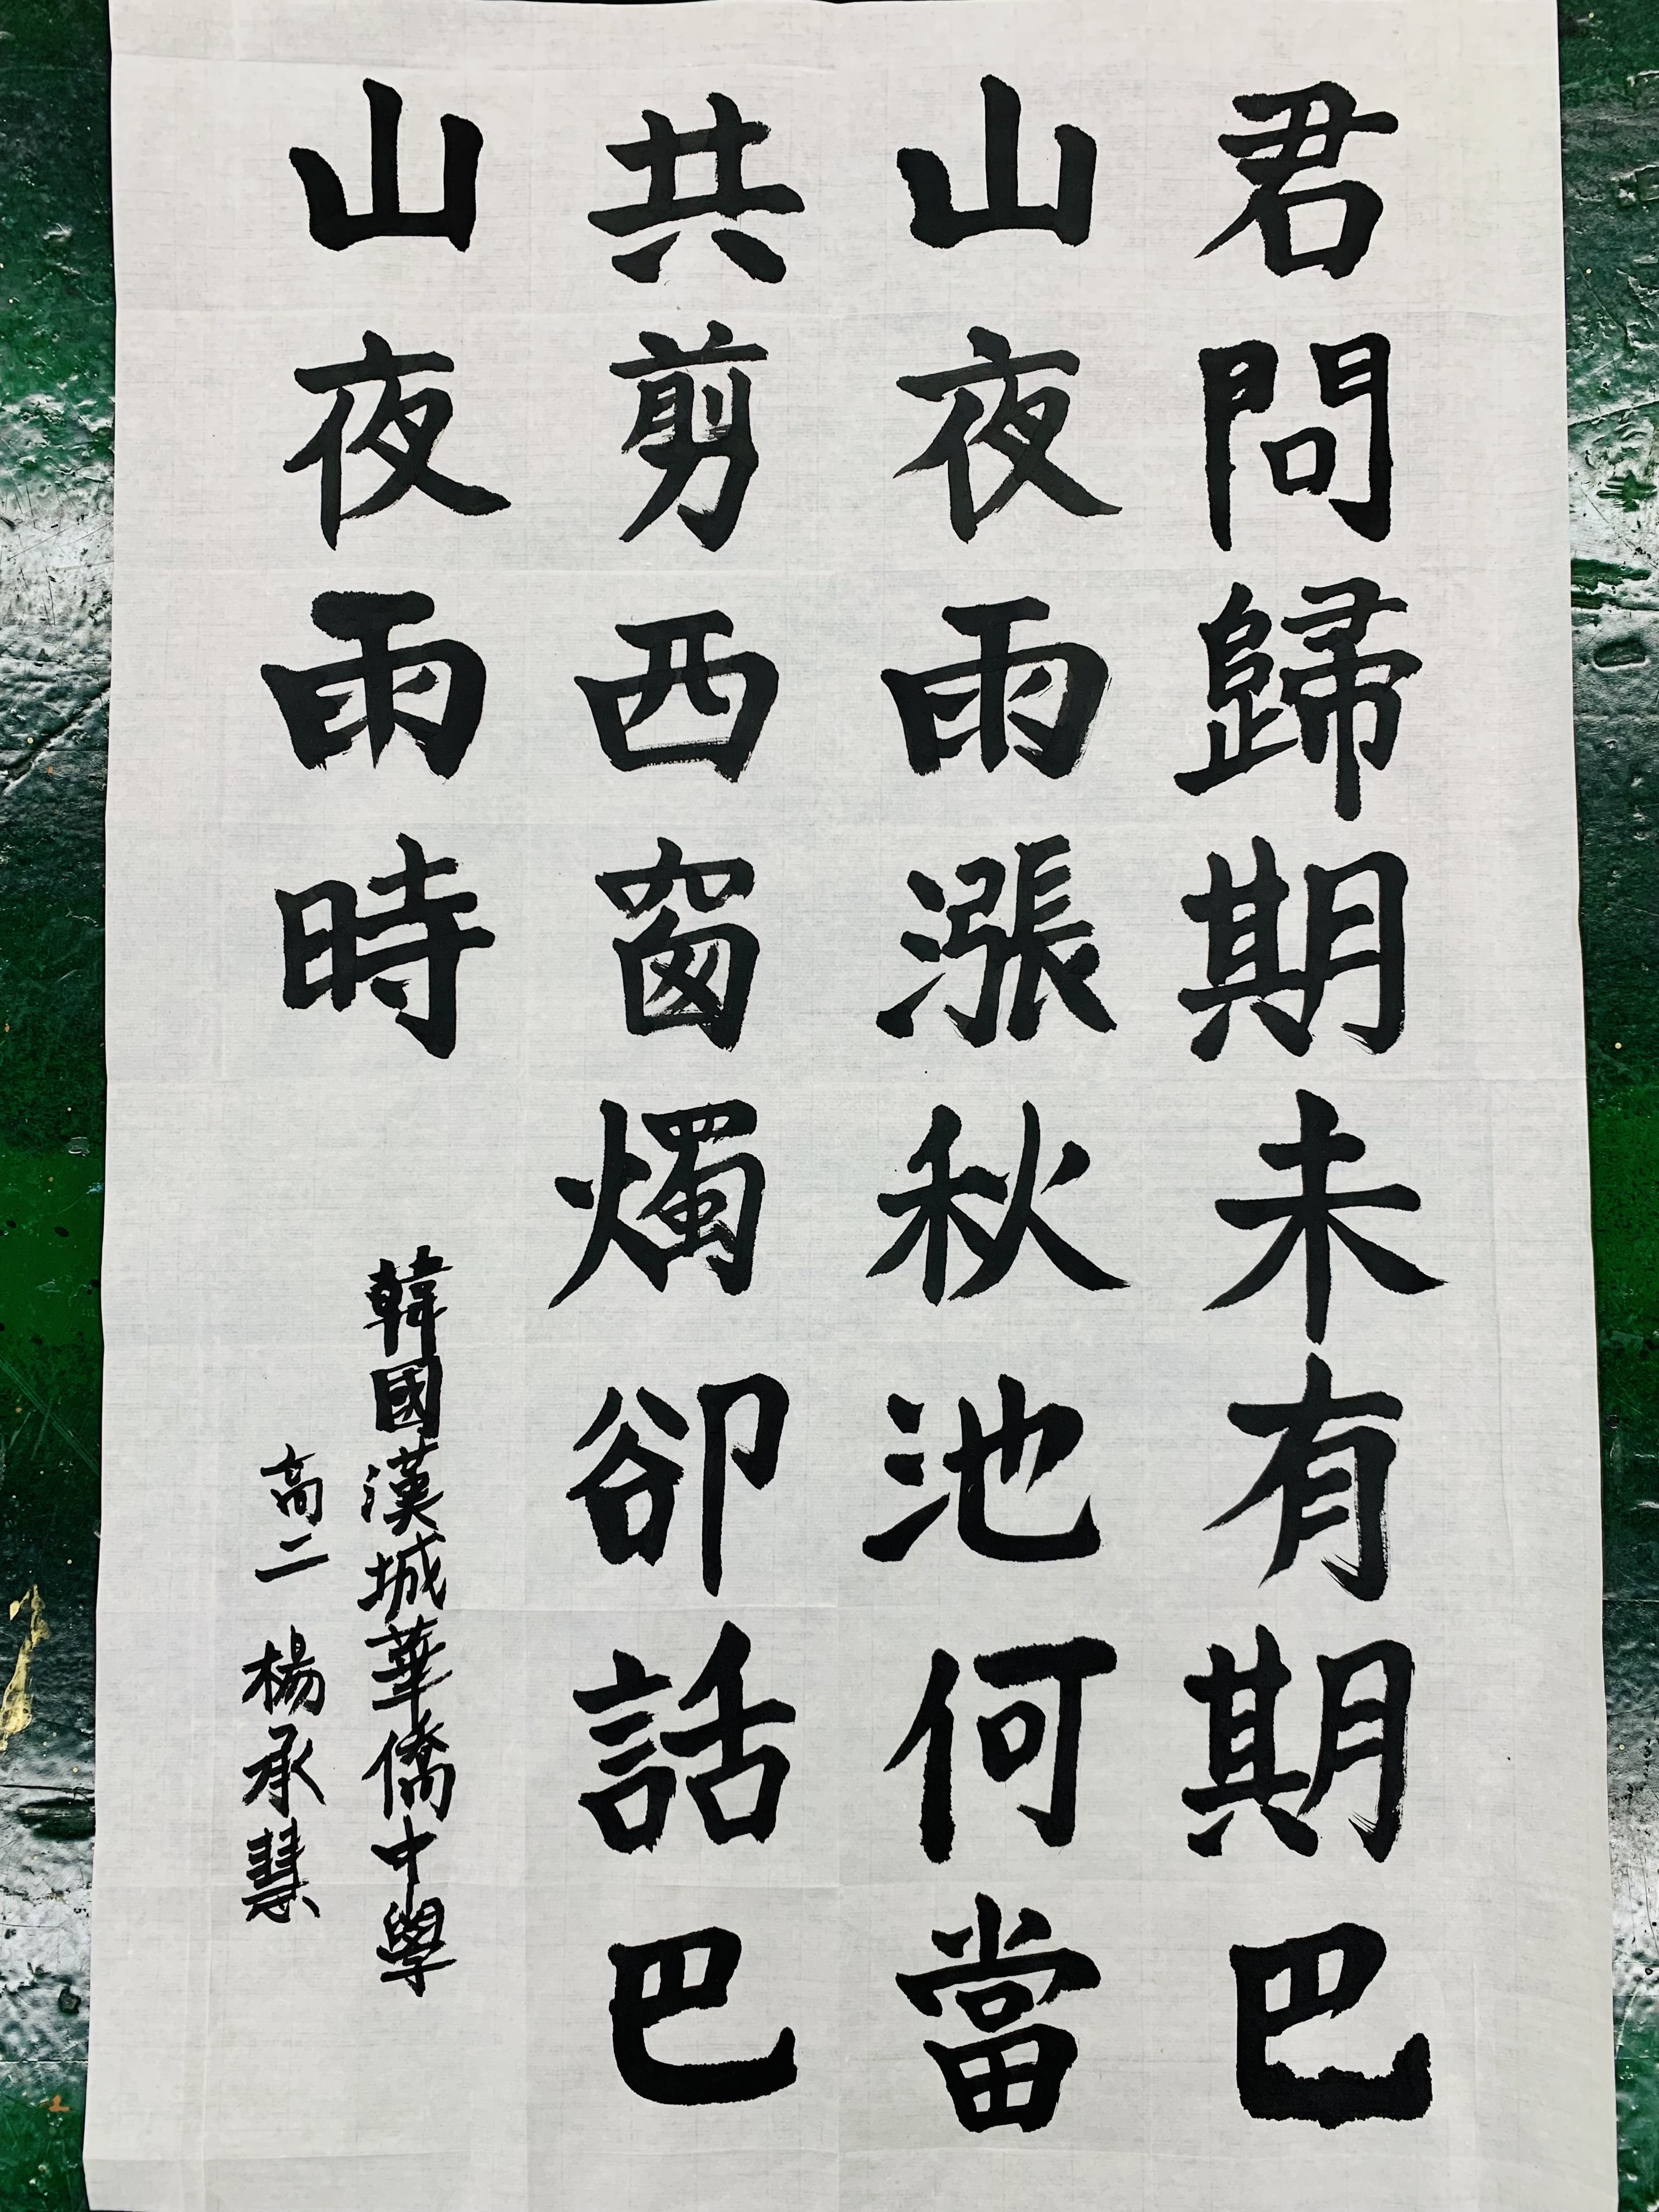 君問歸期未有期巴
山夜雨漲秋池何當
共剪西窗燭卻話巴
山夜雨時
韓國漢城華僑中學
高二 楊承慧